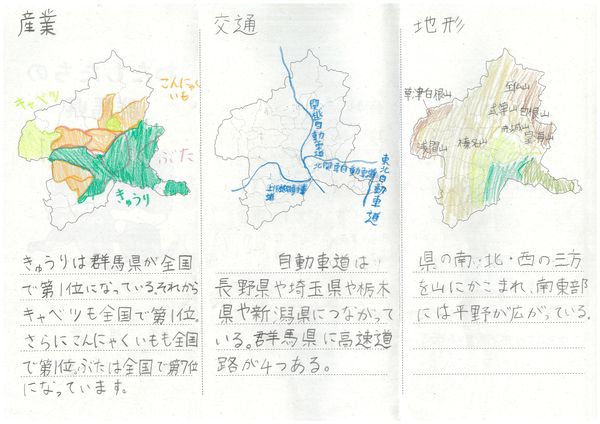 産業
キャベツ
こんにゃく
いも
ぶた
きゅうり
きゅうりは群馬県が全国
で第1位になっている。それから
キャベツも全国で第1位。
さらにこんにゃくいもも全国
で第1位。ぶたは全国で第7位
になっています。
交通
関越自動車道
北関東自動車道
東北自動車道
上信越自動車
道
自動車道は
長野県や埼玉県や栃木
県や新潟県につながって
いる。群馬県に高速道
路が4つある。
地形
至仏山
草津白根山
武尊山
白根山
赤城山
皇海山
浅間山
榛名山
県の南・北・西の三方
を山にかこまれ、南東部
には平野が広がっている。